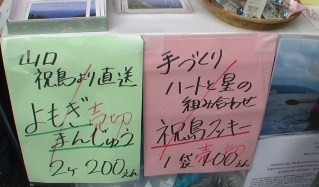 山口
祝島より直送
よもぎ
まんじゅう
売切
2ヶ200えん
手づくり
ハートと星の
組み合わせ
祝島クッキー
売切
1袋100えん